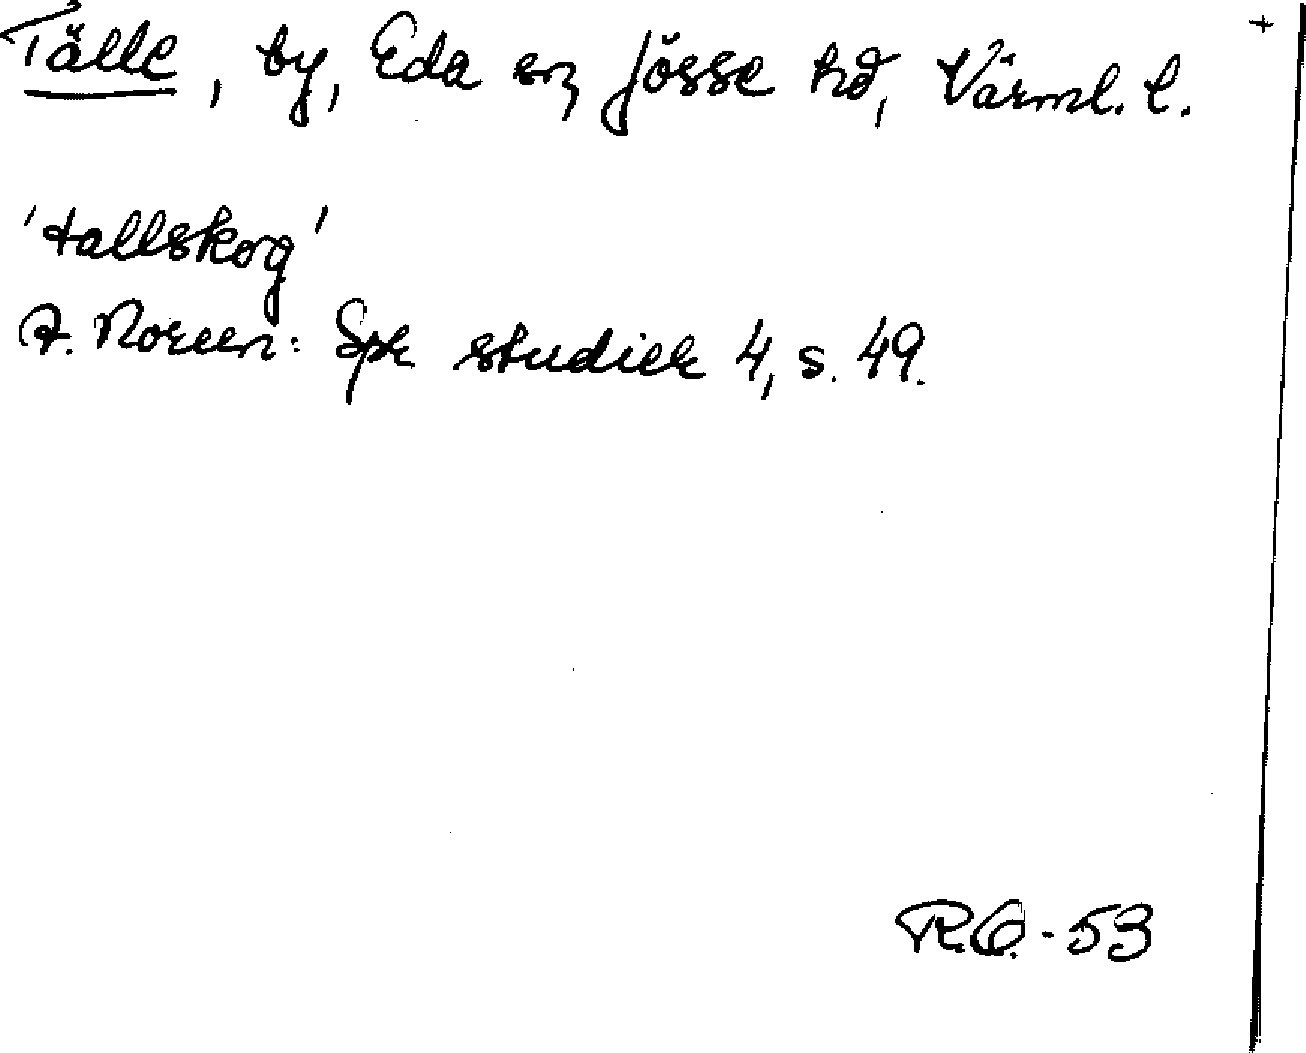 +
Tälle, by, Eda sn, Jösse hd, Värml. l.
'tallskog'
A. Noreen: Spr studier 4, s. 49.
R.O. - 53